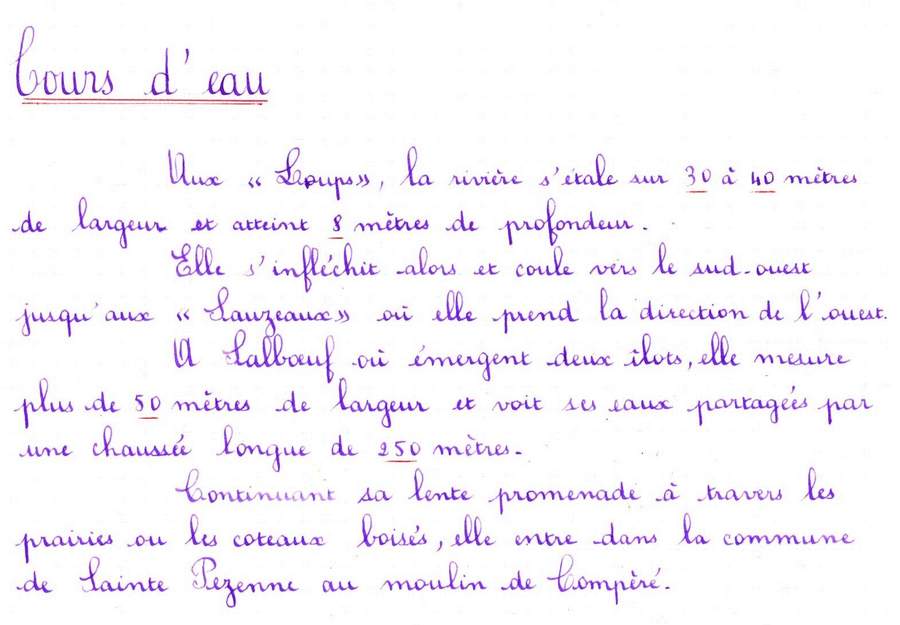 Cours d'eau
Aux « Loups », la rivière s'étale sur 30 à 40 mètres
de largeur et atteint 8 mètres de profondeur.
Elle s'infléchit alors et coule vers le sud-ouest
jusqu'aux « Lauzeaux » où elle prend la direction de l'ouest.
A Salboeuf où émergent deux îlots, elle mesure
plus de 50 mètres de largeur et voit ses eaux partagées par
une chaussée longue de 250 mètres.
Continuant sa lente promenade à travers les
prairies ou les coteaux boisés, elle entre dans la commune
de Sainte Pezenne au moulin de Compéré.